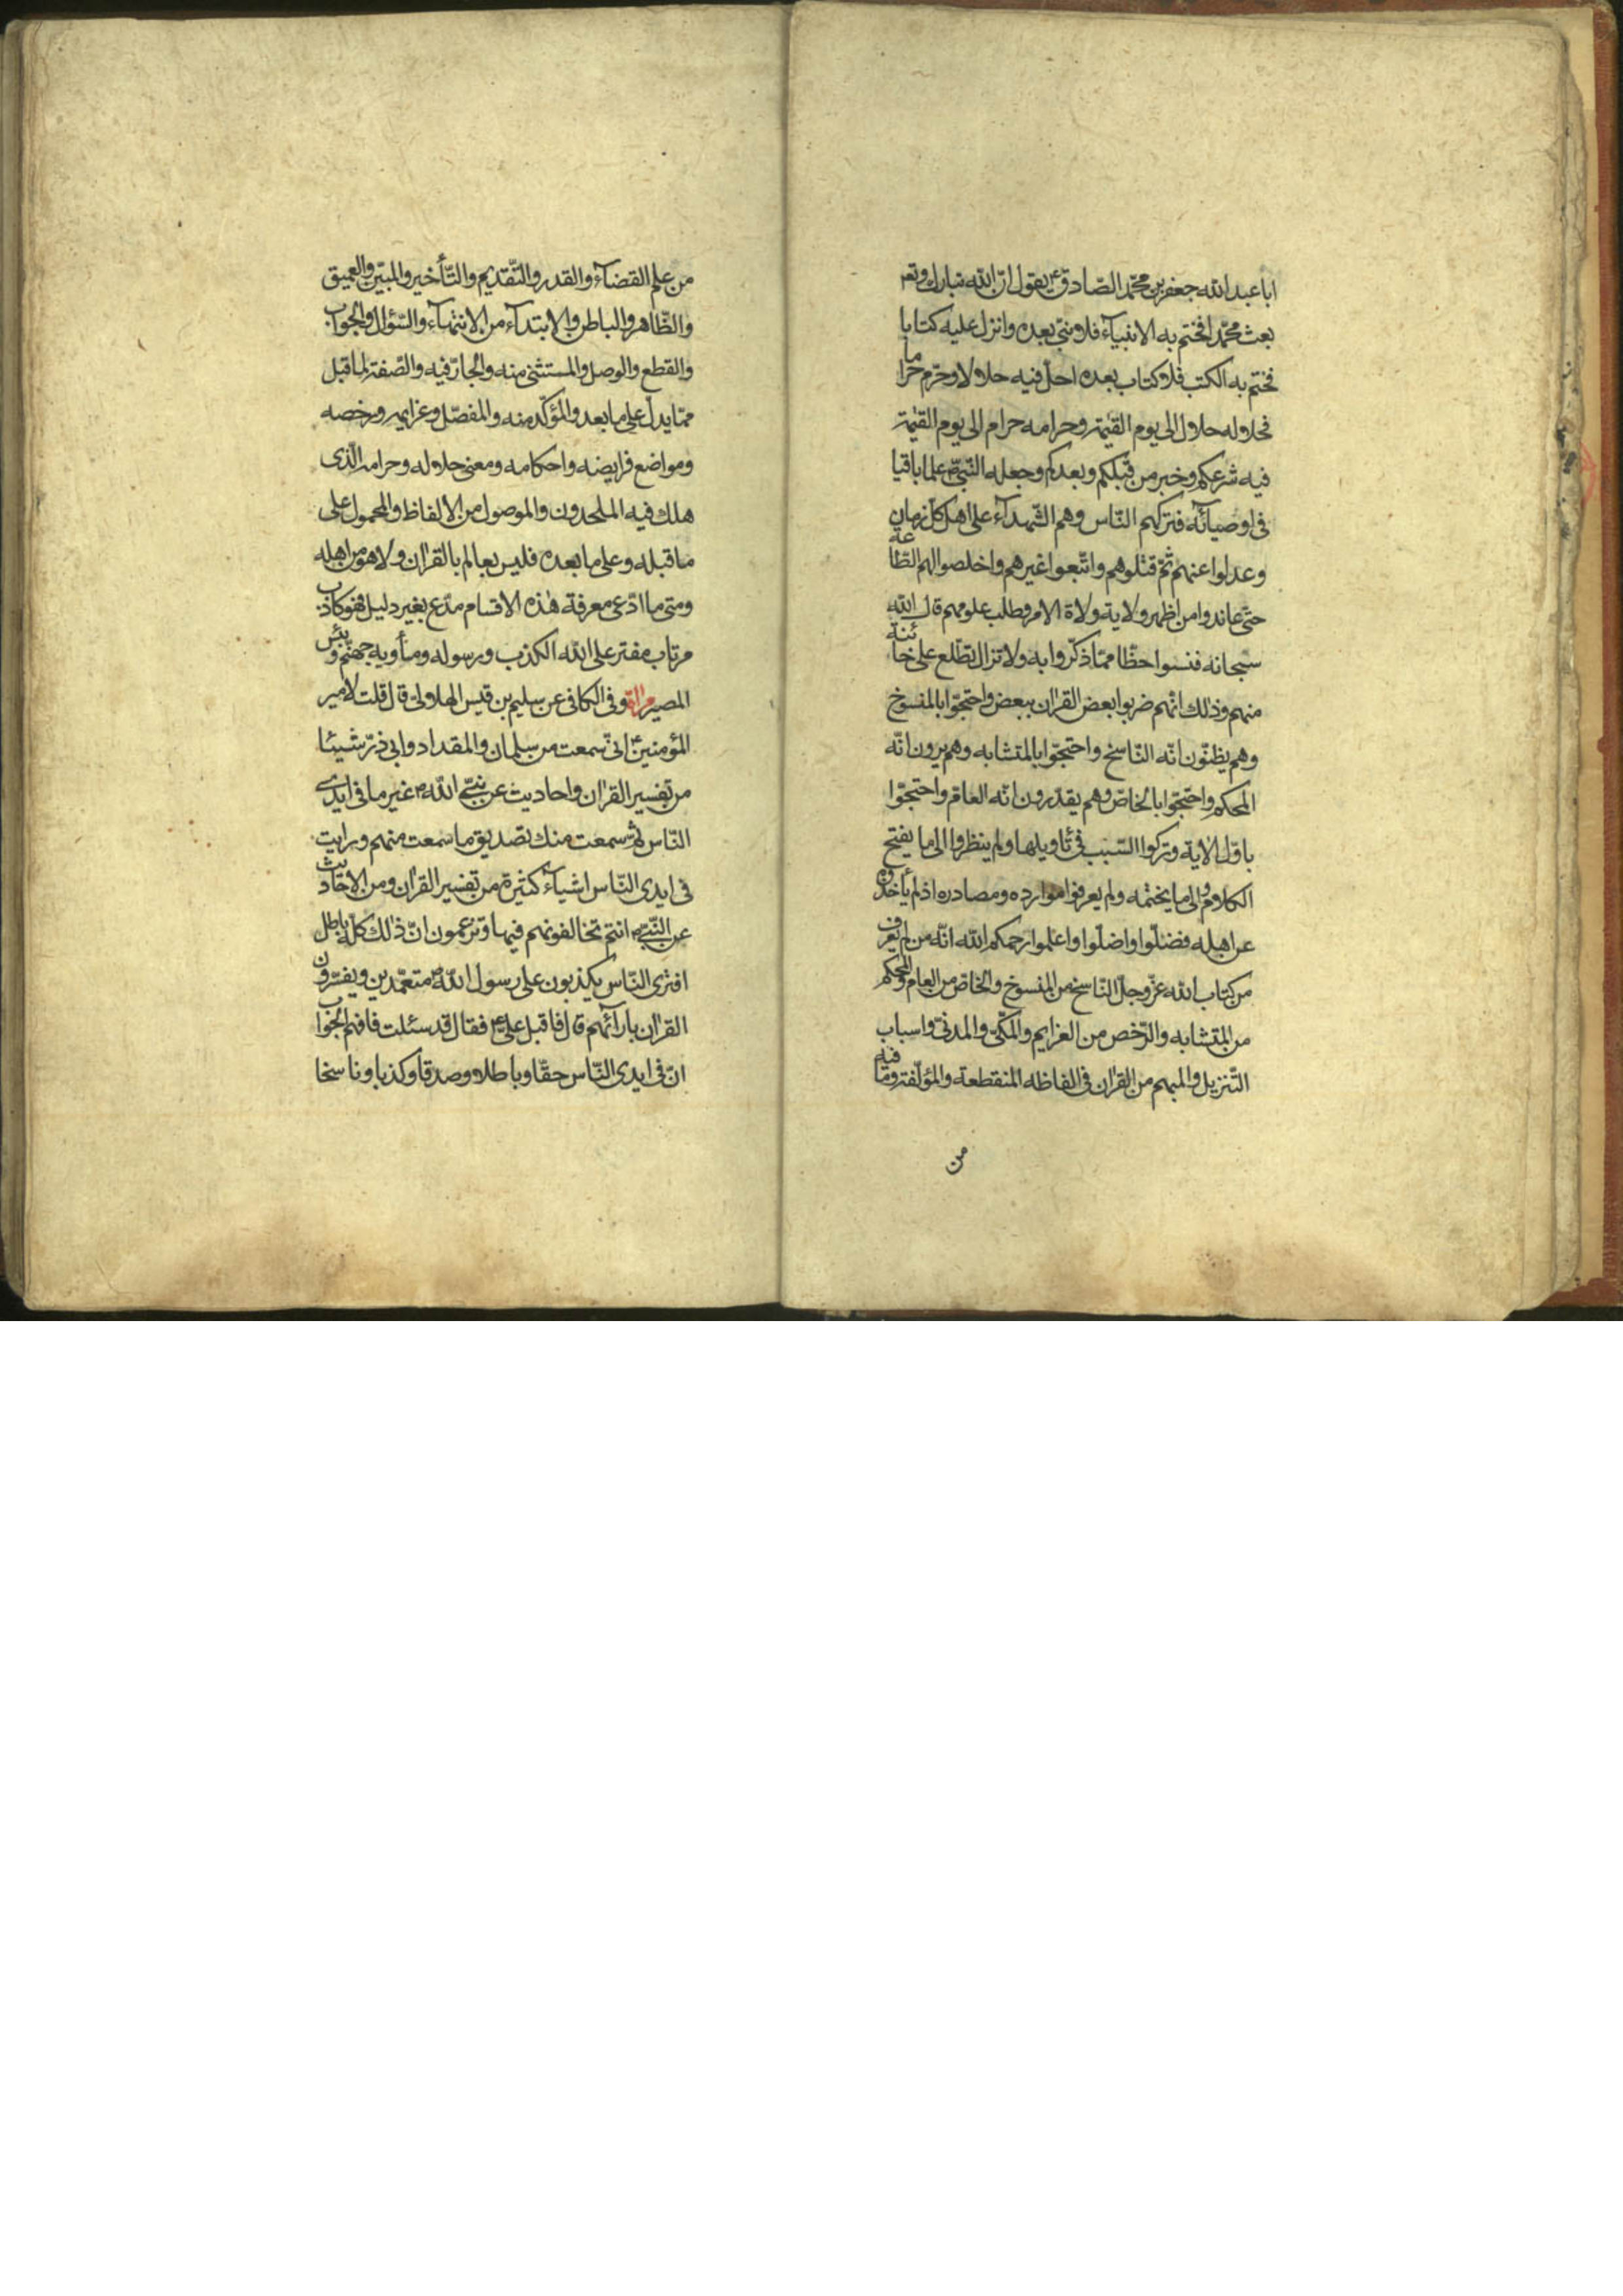 ابا عبد الله جعفر بن محمّد الصّادق ع يقول انّ الله تبارك وتعه
بعث محمّدا فختم به الانبيآء فلا نبيّ بعده وانزل عليه كتابا
فختم به الكتب فلا كتاب بعده احلّ فيه حلالا وحرّم حراما
فحلاله حلال الى يوم القيٰمة وحرامه حرام الى يوم القيٰمة
فيه شرعكم وخبر من قبلكم وبعدكم وجعله النّبيّ ص علما باقيا
فى اوصيآئه فتركهم النّاس وهم الشّهدآء على اهل كلّ زمان
وعدلوا عنهم ثمّ قتلوهم واتّبعوا غيرهم واخلصوا لهم الطّاعة
حتّى عاندوا من اظهر ولاية ولاة الامر وطلب علومهم قال الله
سبحانه فنسوا حظّا ممّا ذكّروا به ولا تزال تطّلع على خائنة
منهم وذلك انّهم ضربوا بعض القرآن ببعض واحتجّوا بالمنسوخ
وهم يظنّون انّه النّاسخ واحتجّوا بالمتشابه وهم يرون انّه
المحكم واحتجّوا بالخاصّ وهم يقدّرون انّه العامّ واحتجّوا
باوّل الاية وتركوا السّبب فى تأويلها ولم ينظروا الى ما يفتح
الكلام والى ما يختمه ولم يعرفوا موارده ومصادره اذ لم يأخذوه
عن اهله فضلّوا واضلّوا واعلموا رحمكم الله انّه من لم يعرف
من كتاب الله عزّ وجلّ النّاسخ من المنسوخ والخاصّ من العام والمحكم
من المتشابه والرّخص من العزايم والمكّىّ والمدنىّ واسباب
التّنزيل والمبهم من القرآن فى الفاظه المنقطعة والمؤلّفة وما فيه
من
من علم القضآء والقدر والتّقديم والتّأخير والمبيّن والعميق
والظّاهر والباطن والابتدآء من الانتهآء والسّؤال والجواب
والقطع والوصل والمستثنى منه والجارّ فيه والصّفة لما قبل
ممّا يدلّ على ما بعد والمؤكّد منه والمفصّل وعزايمه ورخصه
ومواضع فرايضه واحكامه ومعنى حلاله وحرامه الّذى
هلك فيه الملحدون والموصول من الالفاظ والمحمول على
ما قبله وعلى ما بعده فليس بعالم بالقرآن ولا هو من اهله
ومتى ما ادّعى معرفة هٰذه الاقسام مدّع بغير دليل فهو كاذب
مرتاب مفتر على الله الكذب ورسوله ومأويه جهنّم وبئس
المصير وفى الكافى عن سليم بن قيس الهلالىّ قال قلت لامير
المؤمنين ع انّى سمعت من سلمان والمقداد وابى ذرّ شيئا
من تفسير القرآن واحاديث عن نبىّ الله ص غير ما فى ايدى
النّاس ثمّ سمعت منك تصديق ما سمعت منهم ورايت
فى ايدى النّاس اشيآء كثيرة من تفسير القرآن ومن الاحاديث
عن النّبىّ ص انتم تخالفونهم فيها وتزعمون انّ ذٰلك كلّه باطل
افترى النّاس يكذبون على رسول الله ص متعمّدين ويفسّرون
القرآن بارآئهم قال فاقبل علىّ ع فقال قد سئلت فافهم الجواب
انّ فى ايدى النّاس حقّا وباطلا وصدقا وكذبا وناسخا